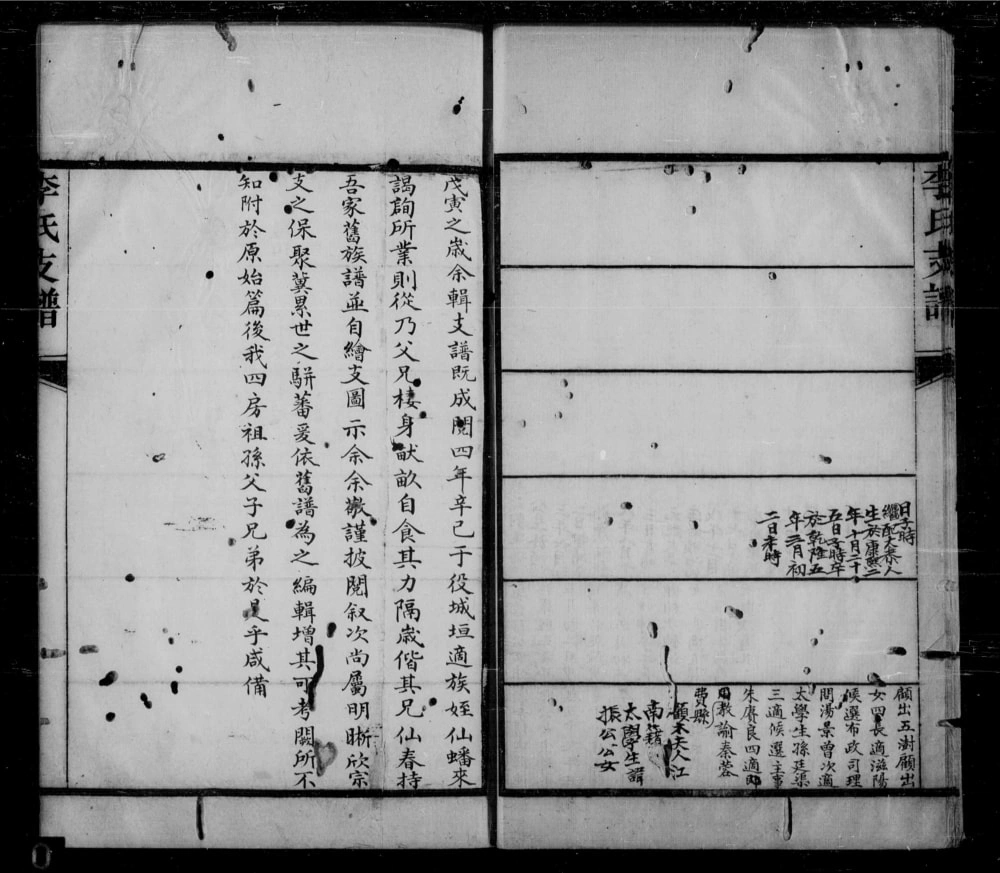 李氏支譜
日子時
繼配大秦人
生於康熙二
年十月二十
五日子時卒
於乾隆五
年三月初
二日未時
顧出五澍顧出
女四長適滋陽
候選布政司理
問湯景曾次適
太學生孫廷渠
三適候選主事
朱賡良四適
教諭秦蓉
費縣
顧末夫人江
南籍
太學生諱
振公公女
戊寅之歲余輯支譜既成閱四年辛巳于役城垣適族姪仙蟠來
謁詢所業則從乃父兄棲身畎畝自食其力隔歲偕其兄仙春持
吾家舊族譜並自繪支圖示余余敬謹披閱叙次尚屬明晰欣宗
支之保聚冀累世之駢蕃爰依舊譜為之編輯增其可考闕所不
知附於原始篇後我四房祖孫父子兄弟於是乎咸備
李氏支譜